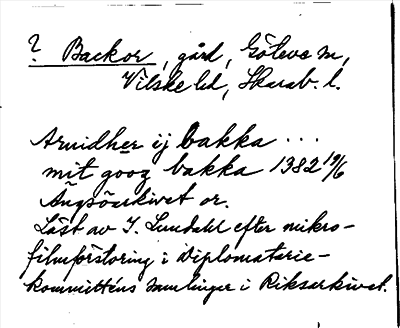 ? Backor, gård, Göteve sn,
Vilske hd, Skarab. l.
Arnidher ij bakka ...
mit gooz bakka 1382 19/6
Ängsöarkivet or.
Läst av I. Lundahl efter mikro-
filmförstoring i Diplomatarie-
kommitténs samlingar i Riksarkivet.